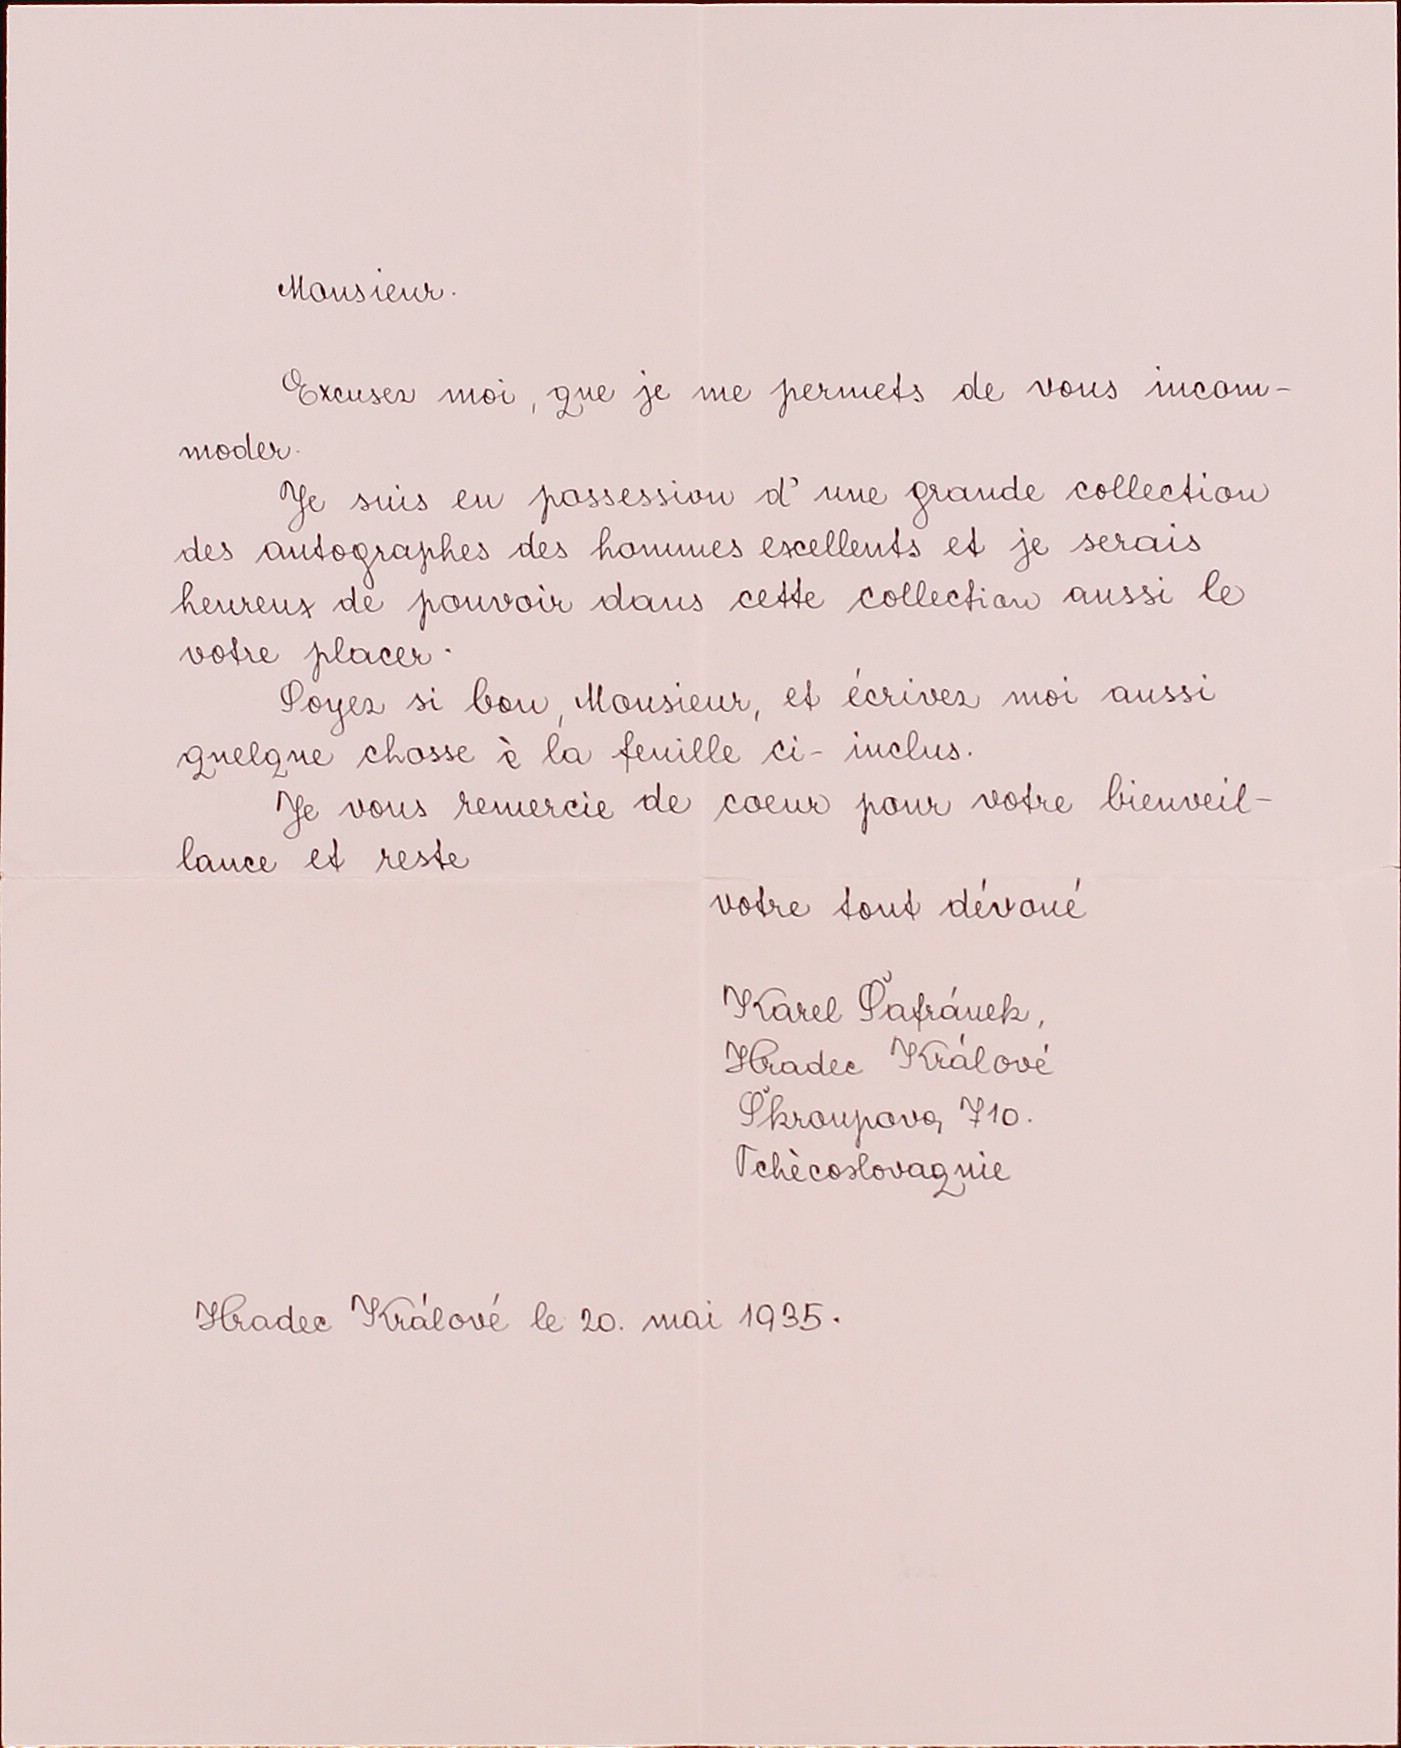 Monsieur.
Excusez moi, que je me permets de vous incom-
moder.
Je suis en possession d'une grande collection
des autographes des hommes excellents et je serais
heureux de pouvoir dans cette collection aussi le
votre placer.
Soyez si bon, Monsieur, et écrivez moi aussi
quelque chosse è la feuille ci-inclus.
Je vous remercie de coeur pour votre bienveil-
lance et reste
votre tout dévoué
Karel Šafránek,
Hradec Králové
Škroupova 710.
Tchècoslovaquie
Hradec Králové le 20. mai 1935.